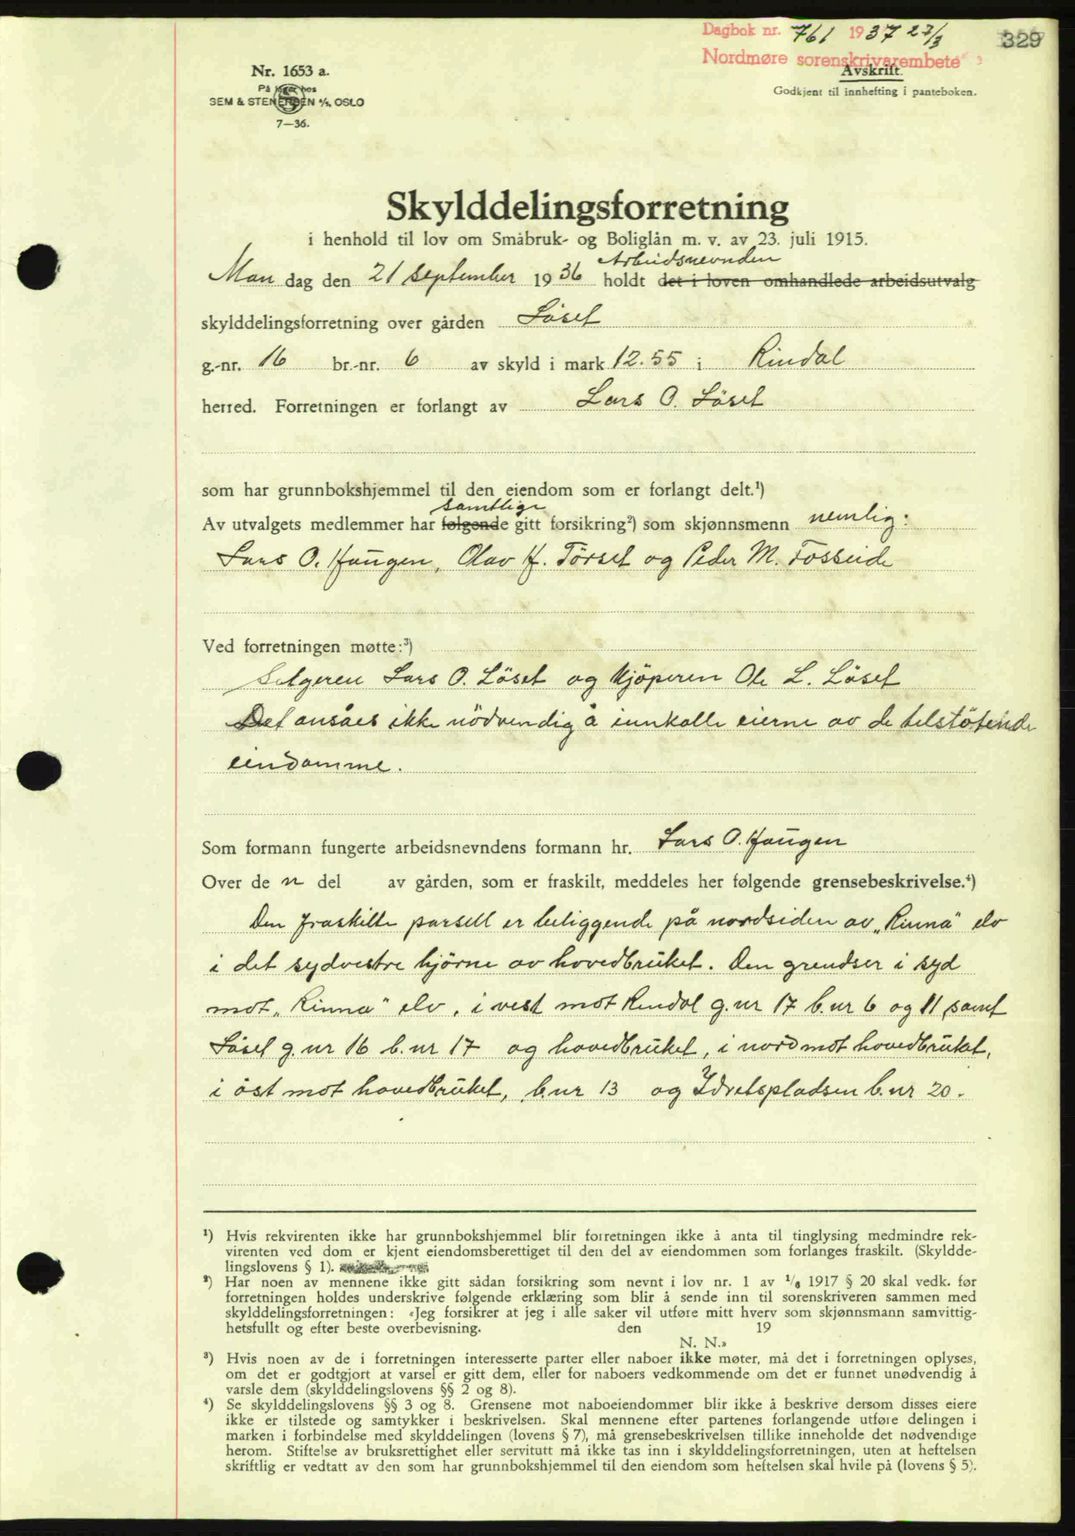 Dagbok nr. 761 1937 27/3
Nordmøre sorenskrivarembete
329
Nr. 1653 a.
På lager hos
SEM & STENERSEN A/S, OSLO
7—36.
Avskrift.
Godkjent til innhefting i panteboken.
Skylddelingsforretning
i henhold til lov om Småbruk- og Boliglån m. v. av 23. juli 1915.
Arbeidsnevnden
Man dag den 21 september 1936 holdt det i loven omhandlede arbeidsutvalg
skylddelingsforretning over gården Löset
g.-nr. 16 br.-nr. 6 av skyld i mark 12.55 i Rindal
herred. Forretningen er forlangt av Lars O. Löset
som har grunnbokshjemmel til den eiendom som er forlangt delt.¹)
samtlige
Av utvalgets medlemmer har følgende gitt forsikring²) som skjønnsmenn nemlig:
Lars O. Haugen, Olav H. Törset og Peder M. Fosseide
Ved forretningen møtte:³)
Selgeren Lars O. Löset og kjöperen Ole L. Löset
Det ansåes ikke nödvendig å innkalle eierne av de tilstötende
eiendomme.
Som formann fungerte arbeidsnevndens formann hr. Lars O. Haugen
Over de n del av gården, som er fraskilt, meddeles her følgende grensebeskrivelse.⁴)
Den fraskilte parsell er beliggende på nordsiden av „Rinna" elv
i det sydvestre hjörne av hovedbruket. Den grendser i syd
mot „Rinna" elv, i vest mot Rindal g.nr 17 b.nr 6 og 11 samt
Löset g.nr 16 b.nr 17 og hovedbruket, i nord mot hovedbruket,
i öst mot hovedbruket, b.nr 13 og Idretspladsen b.nr 20.
¹) Hvis rekvirenten ikke har grunnbokshjemmel blir forretningen ikke å anta til tinglysing medmindre rek-
virenten ved dom er kjent eiendomsberettiget til den del av eiendommen som forlanges fraskilt. (Skyldde-
lingslovens § 1).
²) Har noen av mennene ikke gitt sådan forsikring som nevnt i lov nr. 1 av 1/6 1917 § 20 skal vedk. før
forretningen holdes underskrive følgende erklæring som blir å sende inn til sorenskriveren sammen med
skylddelingsforretningen: «Jeg forsikrer at jeg i alle saker vil utføre mitt hverv som skjønnsmann samvittig-
hetsfullt og efter beste overbevisning. den 19
N. N.»
³) Hvis noen av de i forretningen interesserte parter eller naboer ikke møter, må det i forretningen oplyses,
om det er godtgjort at varsel er gitt dem, eller for naboers vedkommende om det er funnet unødvendig å
varsle dem (skylddelingslovens §§ 2 og 8).
⁴) Se skylddelingslovens §§ 3 og 8. Grensene mot naboeiendommer blir ikke å beskrive dersom disses eiere
ikke er tilstede og samtykker i beskrivelsen. Skal mennene efter partenes forlangende utføre delingen i
marken i forbindelse med skylddelingen (lovens § 7), må grensebeskrivelsen tillike inneholde det nødvendige
herom. Stiftelse av bruksrettighet eller servitutt må ikke tas inn i skylddelingsforretningen, uten at heftelsen
skriftlig er vedtatt av den som har grunnbokshjemmel til den eiendom som heftelsen skal hvile på (lovens § 5).